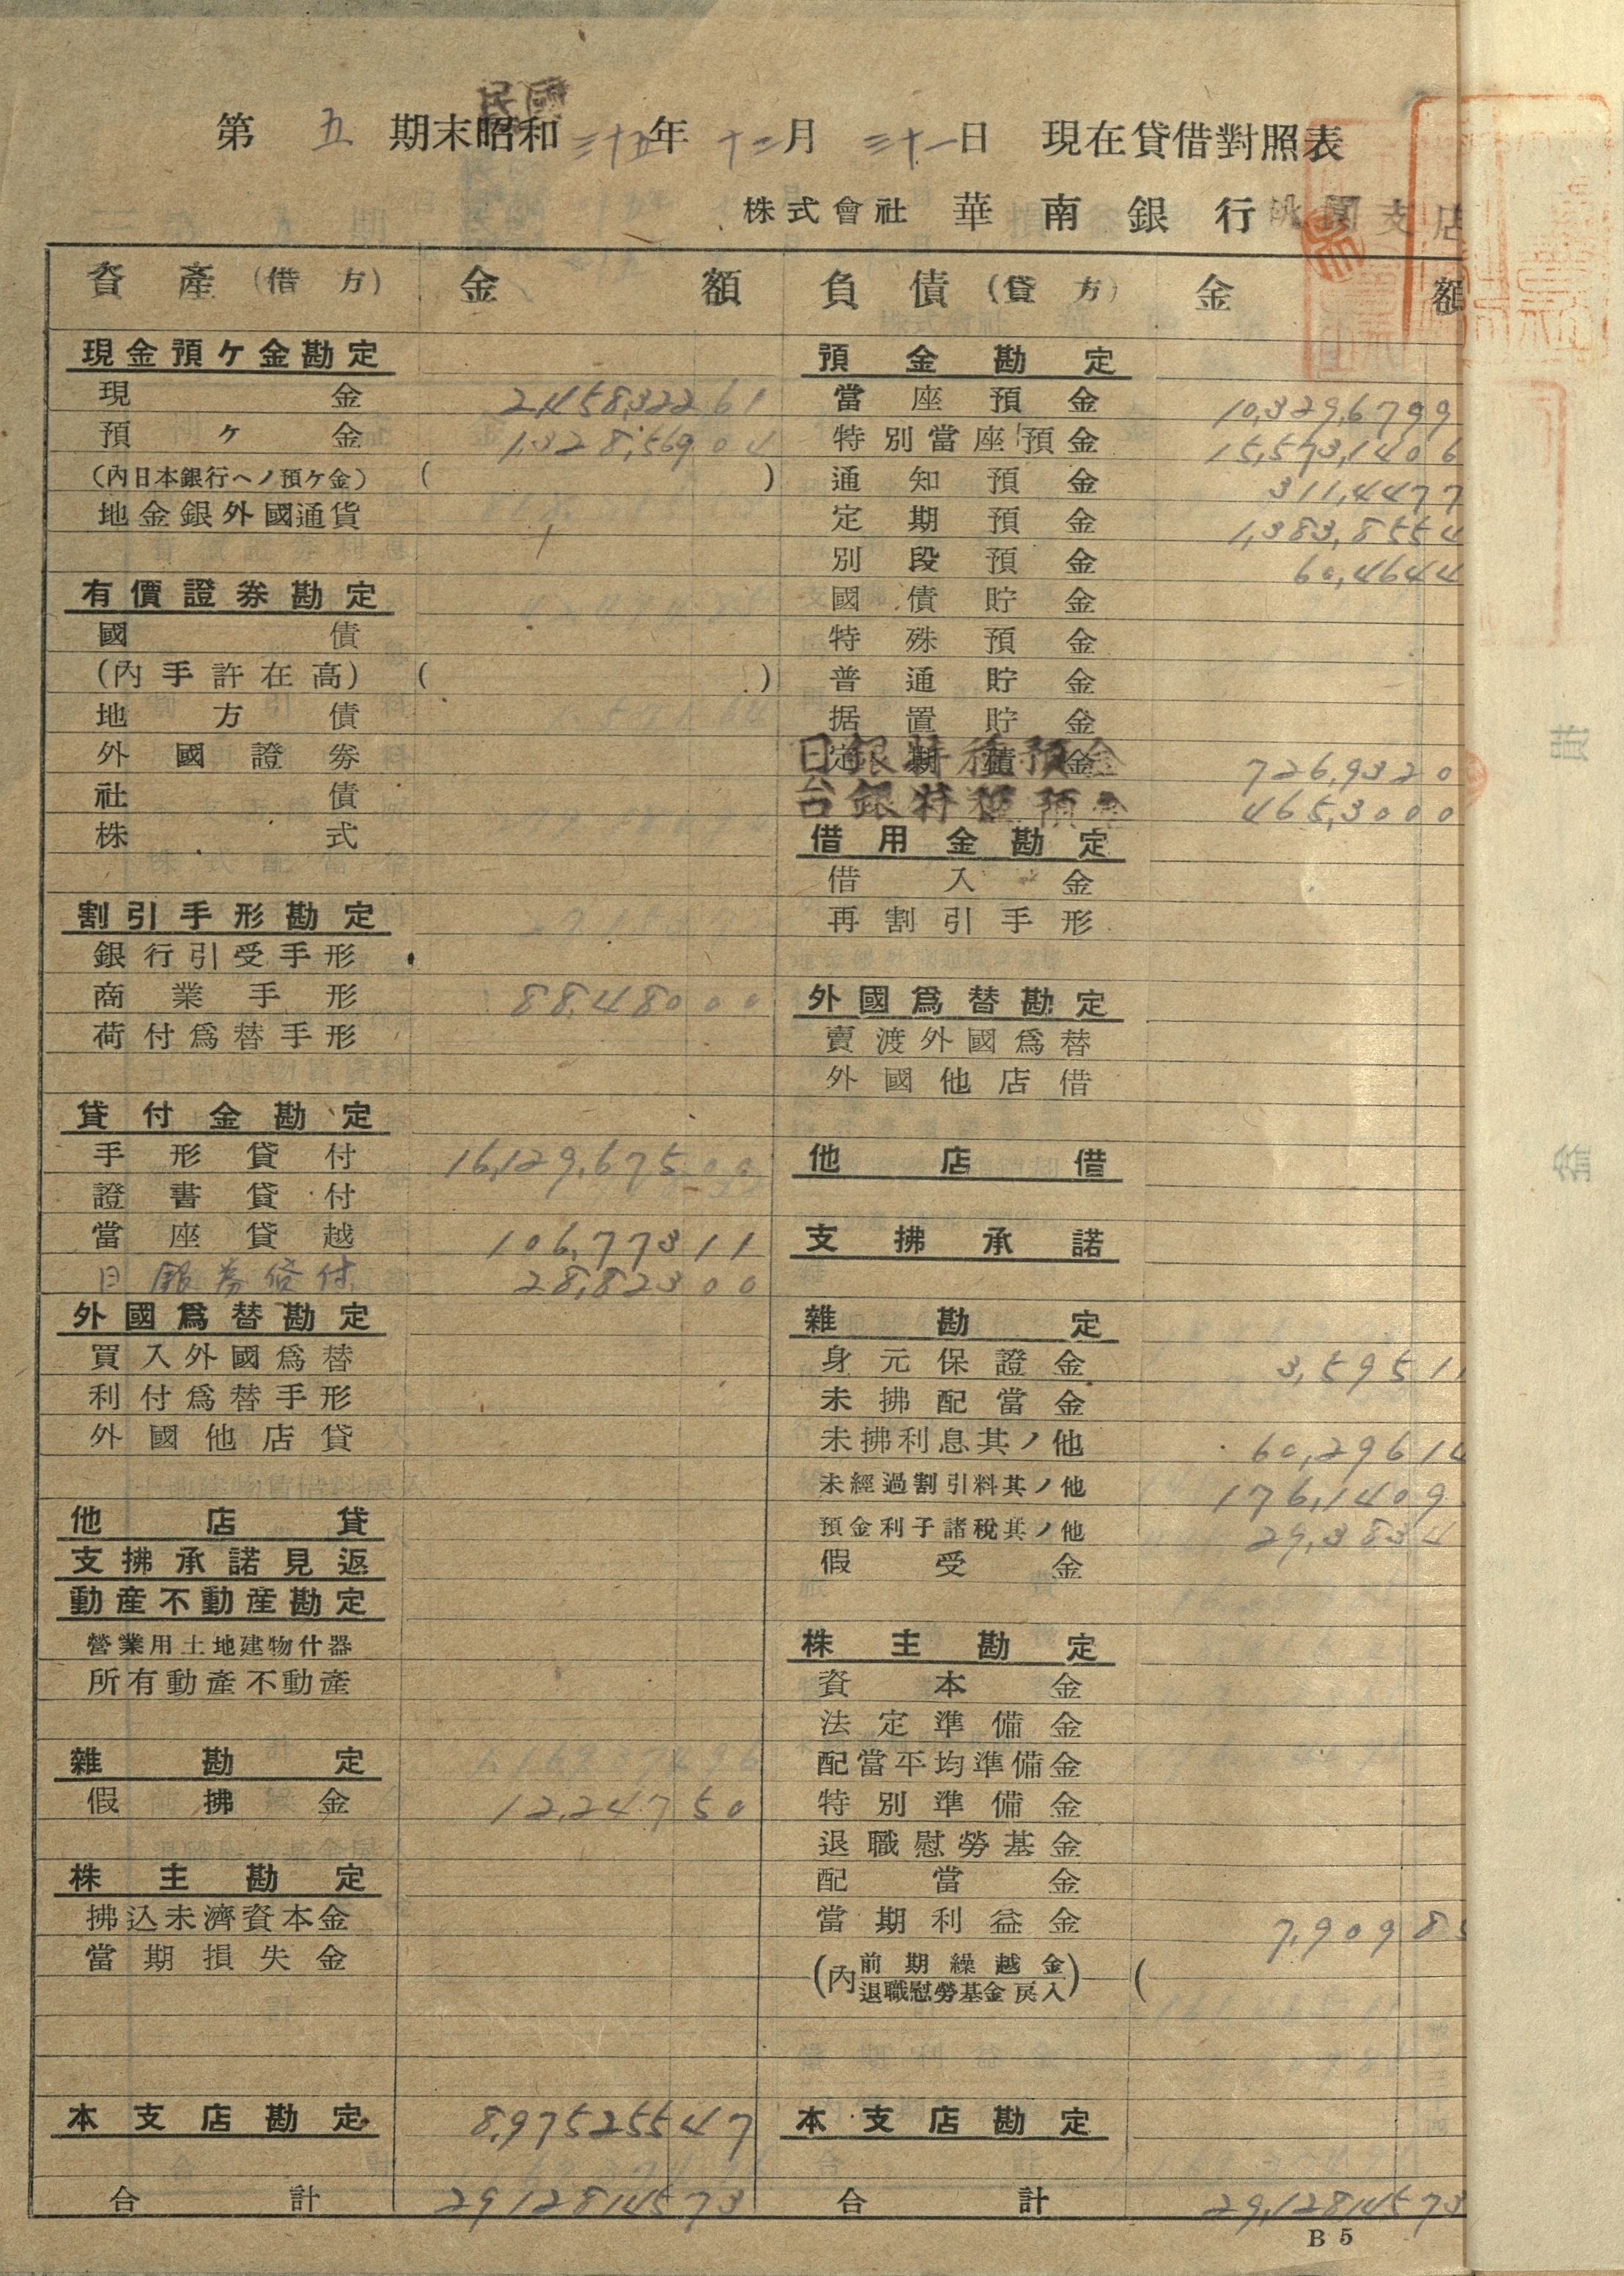 第 五 期末昭和 民國 三十五年 十二月 三十一日 現在貸借對照表
株式會社 華南銀行桃園支店
資產(借方) 金額
現金預ケ金勘定
現金 2,458,322 61
預ケ金 1,328,569 04
(內日本銀行ヘノ預ケ金) ( )
地金銀外國通貨
有價證券勘定
國債
(內手許在高) ( )
地方債
外國證券
社債
株式
割引手形勘定
銀行引受手形
商業手形 88,480 00
荷付爲替手形
貸付金勘定
手形貸付 16,129,675 00
證書貸付
當座貸越 106,773 11
日銀券貸付 28,823 00
外國爲替勘定
買入外國爲替
利付爲替手形
外國他店貸
他店貸
支拂承諾見返
動產不動產勘定
營業用土地建物什器
所有動產不動產
雜勘定
假拂金 12,247 50
株主勘定
拂込未濟資本金
當期損失金
本支店勘定 8,975,255 47
合計 29,128,145 73
負債(貸方) 金額
預金勘定
當座預金 10,329,679 9
特別當座預金 15,573,140 6
通知預金 311,447 7
定期預金 1,383,855 4
別段預金 60,464 4
國債貯金
特殊預金
普通貯金
据置貯金
定期積金 日銀特種預金 726,932 0
台銀特種預金 465,300 0
借用金勘定
借入金
再割引手形
外國爲替勘定
賣渡外國爲替
外國他店借
他店借
支拂承諾
雜勘定
身元保證金 3,595 11
未拂配當金
未拂利息其ノ他 60,296 14
未經過割引料其ノ他 176,140 9
預金利子諸稅其ノ他 29,383 4
假受金
株主勘定
資本金
法定準備金
配當平均準備金
特別準備金
退職慰勞基金
配當金
當期利益金 7,909 85
(內 前期繰越金 退職慰勞基金戾入) (
本支店勘定
合計 29,128,145 73
B 5